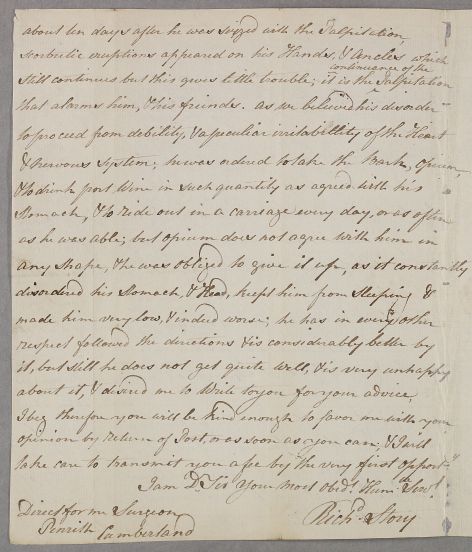 about ten days after he was seized with the Palpitation,
scorbutic eruptions appeared on his Hands, & Ancles which
still continues but this gives little trouble; it is the continuance of the Palpitation
that alarms him, & his friends. as we believe his disorder
to proceed from debility, & a peculiar irritability of the Heart
& nervous System; he was ordered to take the Bark, Opium,
& to drink port Wine in such quantity as agreed with his
Stomach, & to ride out in a carriage every day, or as often
as he was able; but opium does not agree with him in
any shape, & he was obliged to give it up, as it constantly
disordered his Stomach, & Head, kept him from sleeping &
made him very low, & indeed worse; he has in every other
respect followed the directions & is considerably better by
it, but still he does not get quite well, & is very unhappy
about it, & desired me to Write to you for your advice.
I beg therefore you will be kind enough to favor me with your
opinion by return of Post, or as soon as you can, & I will
take care to transmit you a fee by the very first opport.y
I am D.r Sir your most obed.t Hum.le Serv.t
Rich.d Story
Direct for me Surgeon
Penrith Cumberland